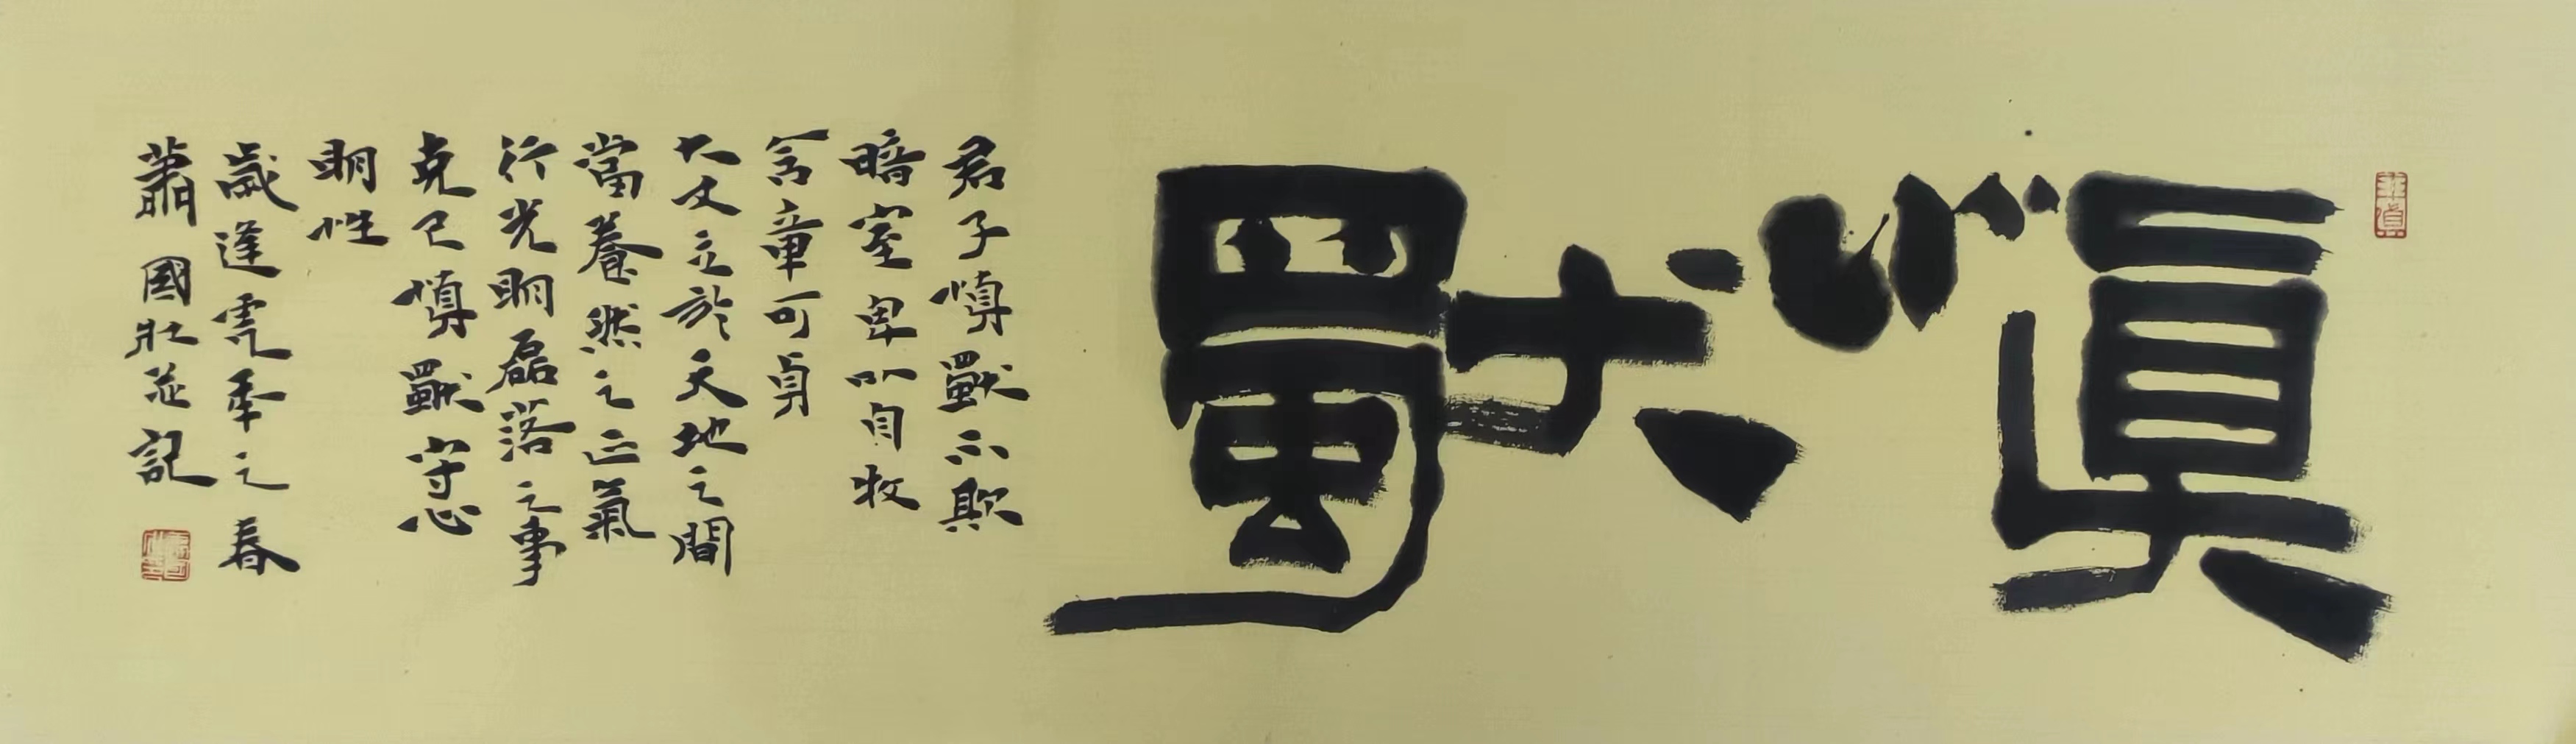 愼獨
君子慎獨不欺
暗室卑以自牧
含章可貞
大丈立於天地之間
當養然之正氣
行光明磊落之事
克己慎獨守心
明性
歲逢虎年之春
蕭國壯並記